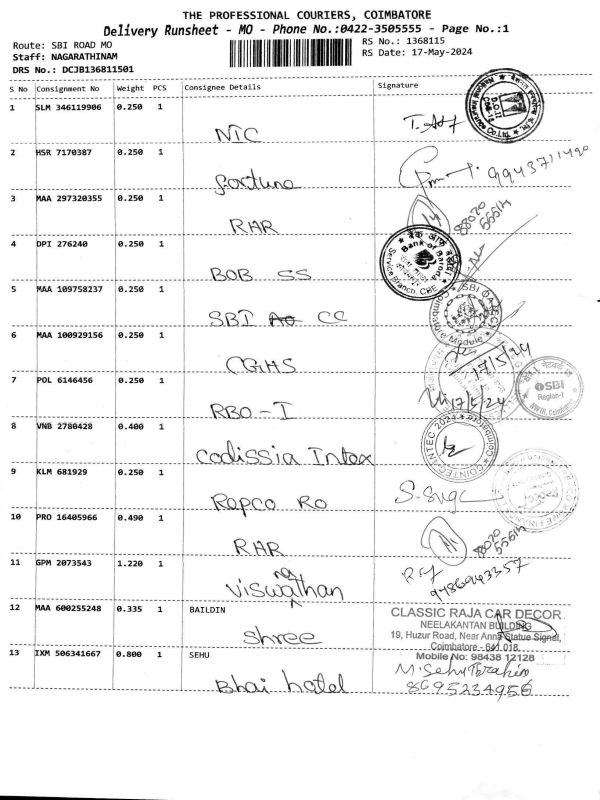 THE PROFESSIONAL COURIERS, COIMBATORE
Delivery Runsheet - MO - Phone No.:0422-3505555 - Page No.:1
Route: SBI ROAD MO
RS No.: 1368115
Staff: NAGARATHINAM
RS Date: 17-May-2024
DRS No.: DCJB136811501
S No Consignment No Weight PCS Consignee Details Signature
1 SLM 346119906 0.250 1
NIC
2 HSR 7170387 0.250 1
fortune 9943711490
3 MAA 297320355 0.250 1
RHR 88020 55614
4 DPI 276240 0.250 1
BOB SS
Bank of Baroda
Service Branch, CBE
5 MAA 109758237 0.250 1
SBI CC
Coimbatore Module
6 MAA 100929156 0.250 1
CGHS 17/5/24
7 POL 6146456 0.250 1
RBO-I 17/5/24
SBI
Region-I
8 VNB 2780428 0.400 1
Codissia Intex
9 KLM 681929 0.250 1
Repco RO
10 PRO 16405966 0.490 1
RHR 88020 55614
11 GPM 2073543 1.220 1
Viswanathan 9486943357
12 MAA 600255248 0.335 1 BAILDIN
Shree
CLASSIC RAJA CAR DECOR
NEELAKANTAN BUILDING
19, Huzur Road, Near Anna Statue Signel,
Coimbatore - 641 018.
Mobile No: 98438 12128
13 IXM 506341667 0.800 1 SEHU
Bhai hotel
M. Sehu Ibrahim
8695234956